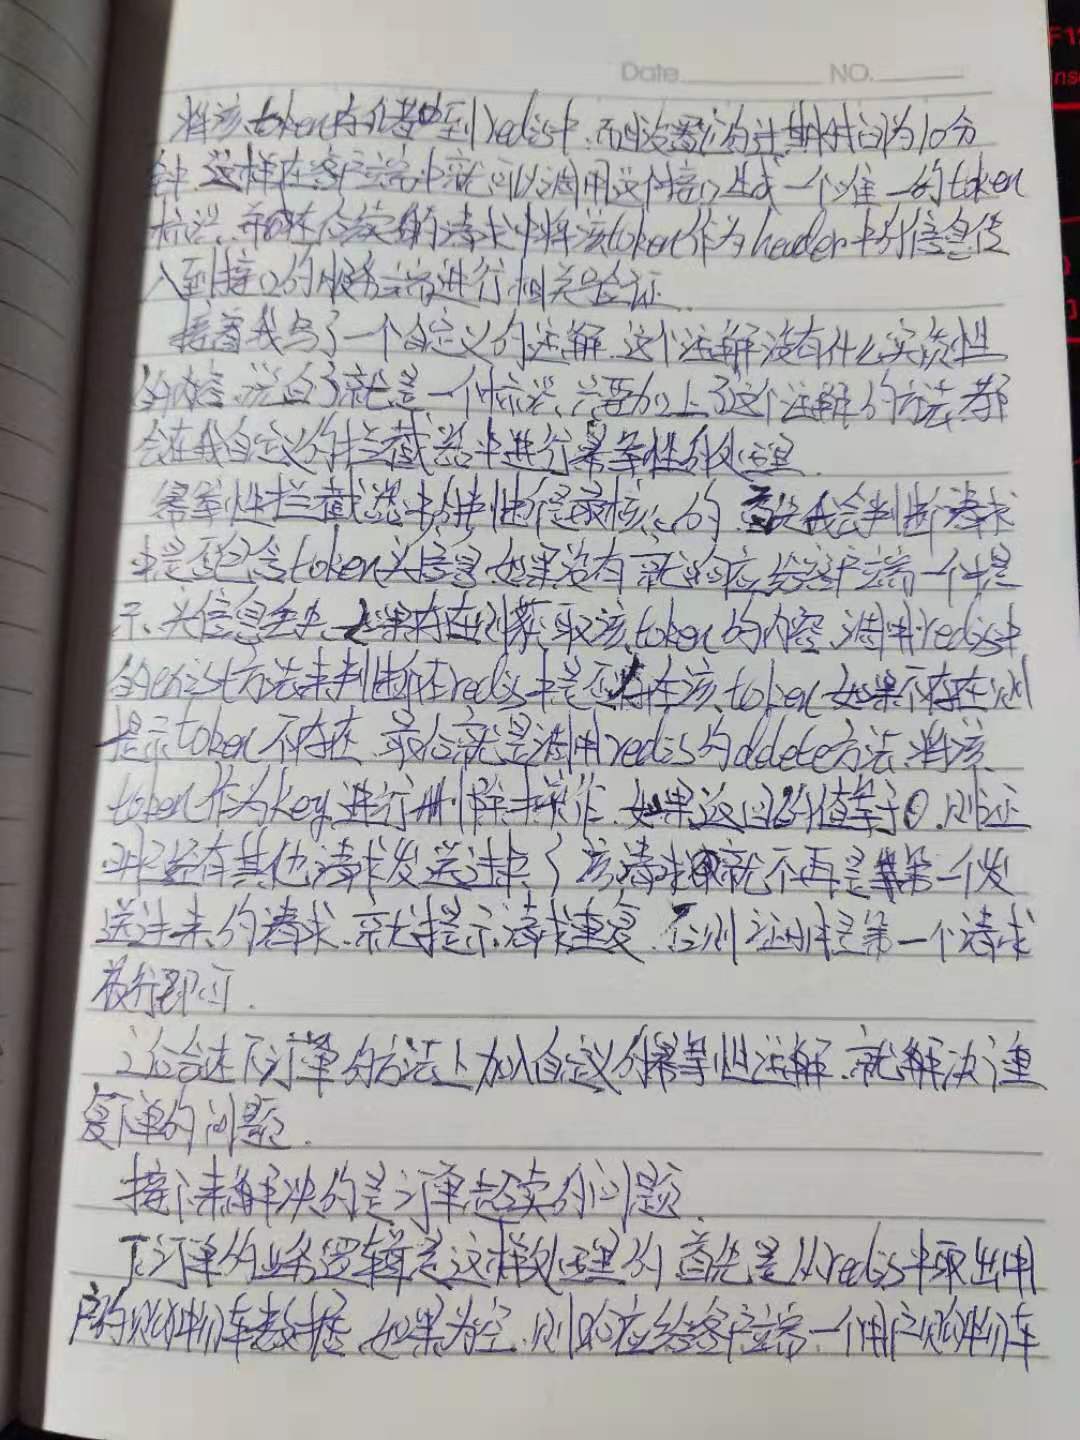 Date NO.
将该token内容存到redis中,而且设置它的过期时间为10分
钟,这样在客户端中就可以调用这个接口生成一个唯一的token
标识,并在后续的请求中将该token作为header中的信息传
入到接口的服务端进行相关验证.
接着我写了一个自定义的注解,这个注解没有什么实质性
的内容,说白了就是一个标识,只要加上了这个注解的方法,都
会在我自定义的拦截器中进行幂等性的处理.
幂等性拦截器中的判断是最核心的,首先我会判断请求
中是否包含token头信息,如果没有,就响应给客户端一个提
示,头信息丢失,如果存在则获取该token的内容,调用redis中
的exist方法来判断在redis中是否存在该token,如果不存在则
提示token不存在,最后就是调用redis的delete方法,将该
token作为key进行删除操作,如果返回的值等于0,则证
明已经有其他请求发送进来了,该请求就不再是第一个发
送进来的请求,就提示请求重复,否则证明是第一个请求
放行即可.
之后会在下订单的方法上加入自定义的幂等性注解,就解决了重
复下单的问题.
接下来解决的是订单超卖的问题.
下订单的业务逻辑是这样处理的,首先是从redis中取出用
户的购物车数据,如果为空,则响应给客户端一个用户购物车